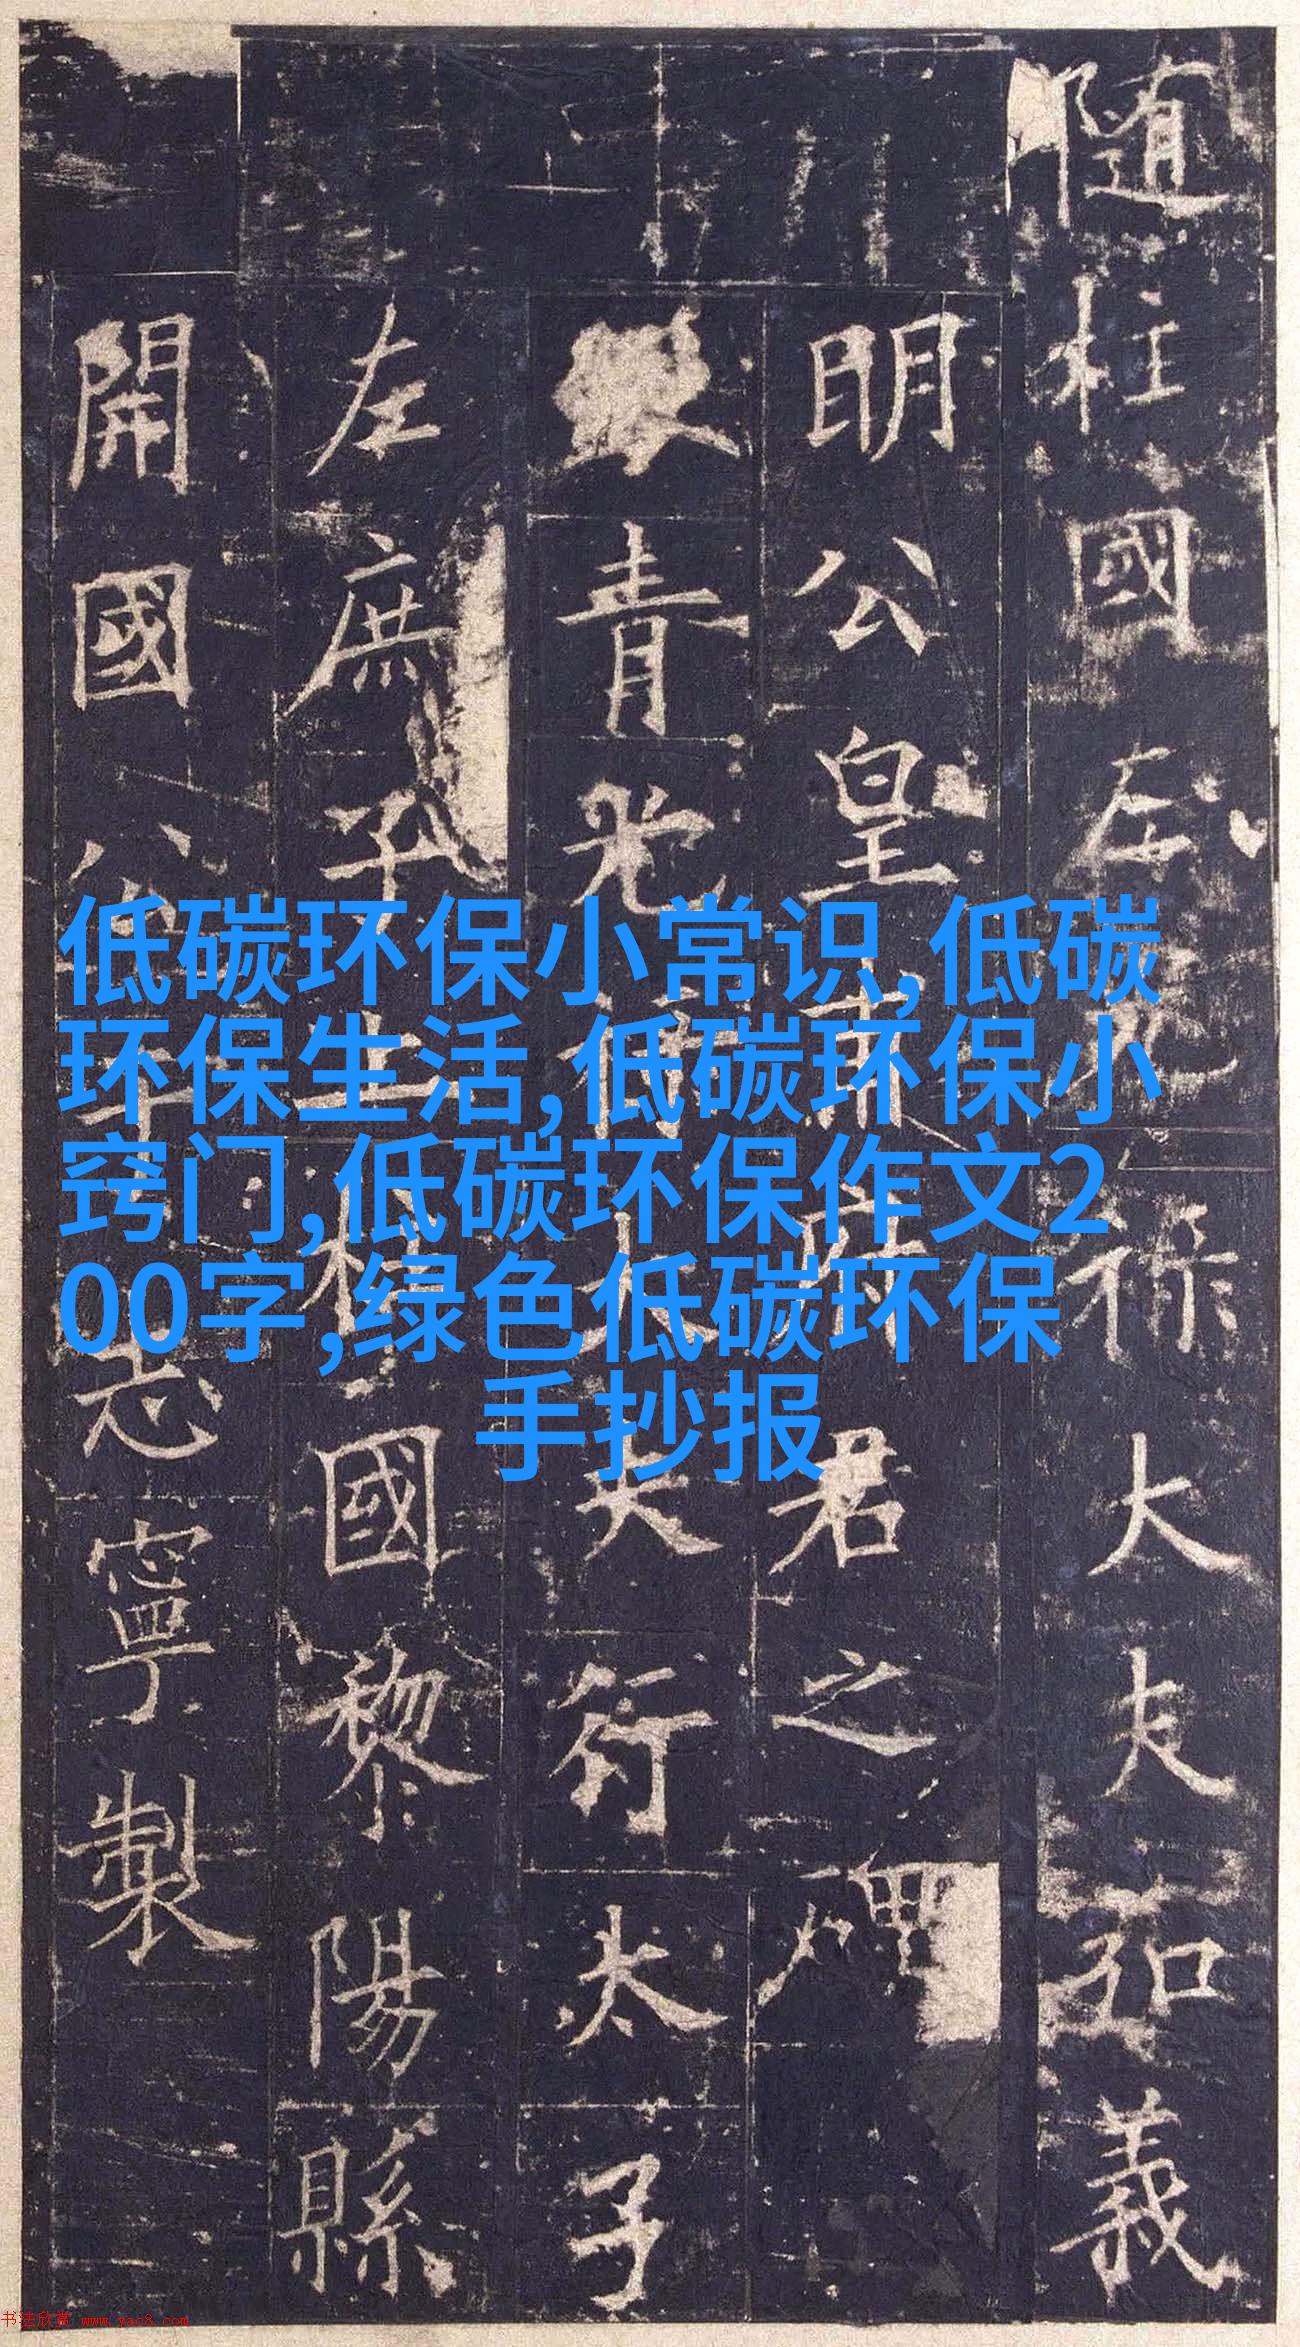 隨柱國左光祿大夫弘義
明公皇甫府君之碑
銀青光祿大夫行太子
左庶子上柱國黎陽縣
開國公于志寧製
低碳环保小常识,低碳
环保生活,低碳环保小
窍门,低碳环保作文2
00字,绿色低碳环保
手抄报
书法欣赏 www.yac8.com